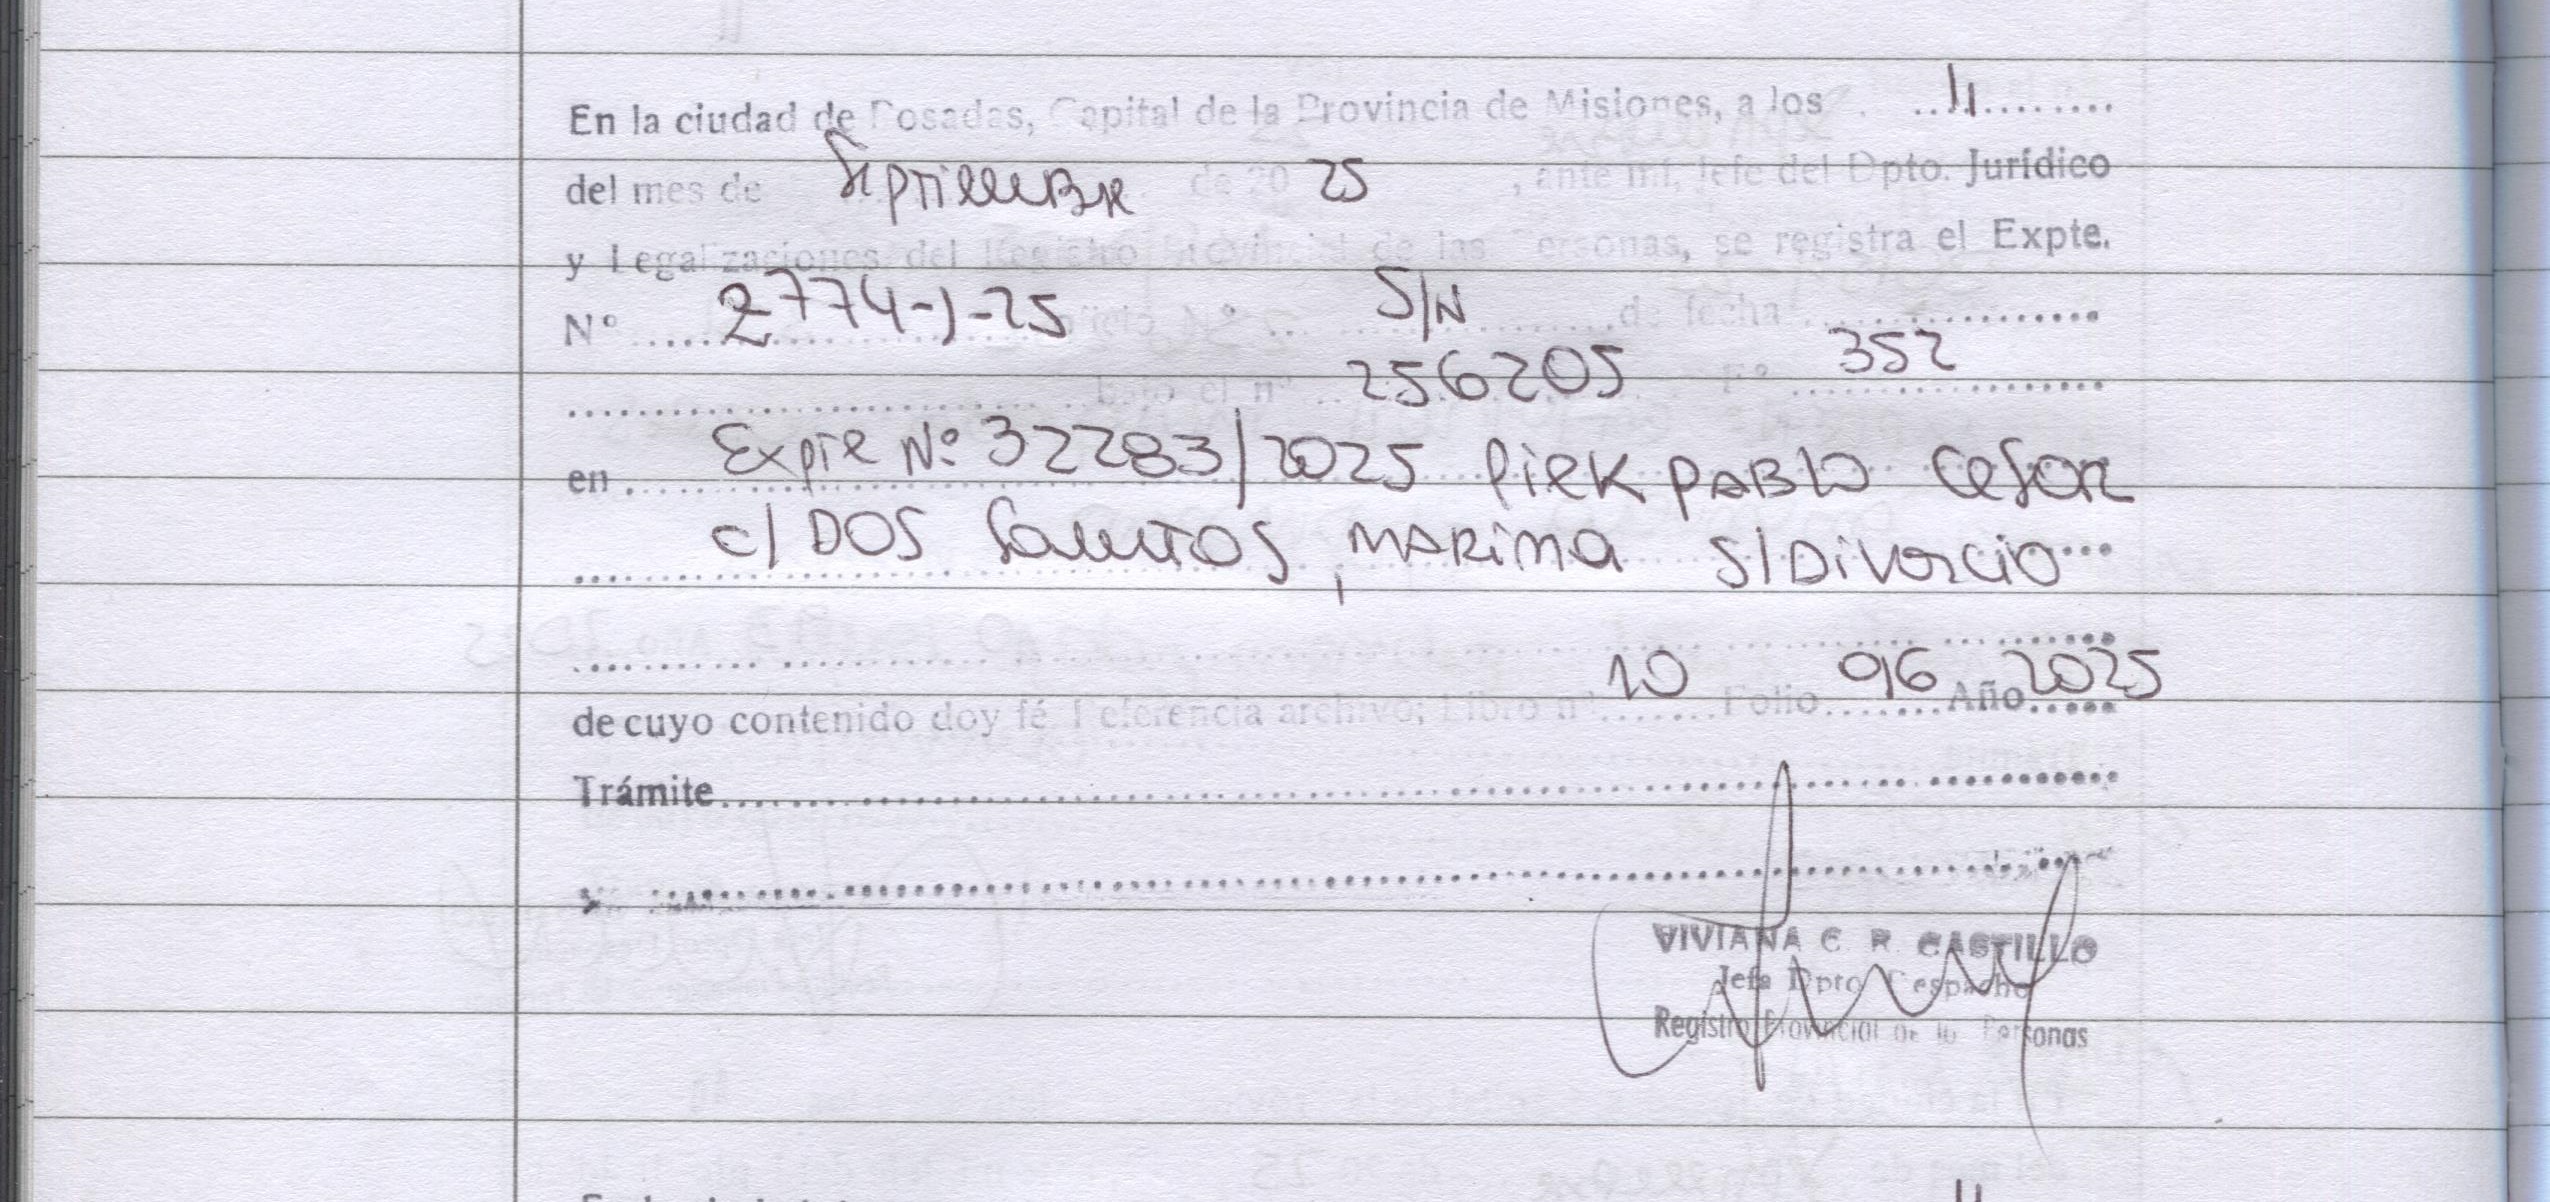 En la ciudad de Posadas, Capital de la Provincia de Misiones, a los ....11........
del mes de Septiembre de 20 25, ante mi, Jefe del Dpto. Jurídico
y Legalizaciones del Registro Provincial de las Personas, se registra el Expte.
Nº ....2774-J-25 oficio Nº ... S/N ... de fecha ....................
................................ bajo el nº .. 256205 Fº ... 352 ............
en .... Expte Nº 32283/2025 Piek Pablo Cesar
c/ DOS Santos, MARINA S/ Divorcio...
................................
de cuyo contenido doy fé Referencia archivo; Libro nº 10 Folio 096 Año 2025
Trámite................................................................
................................................................
VIVIANA C. R. CASTILLO
Jefa Dpto Despacho
Registro Provincial de las Personas
11